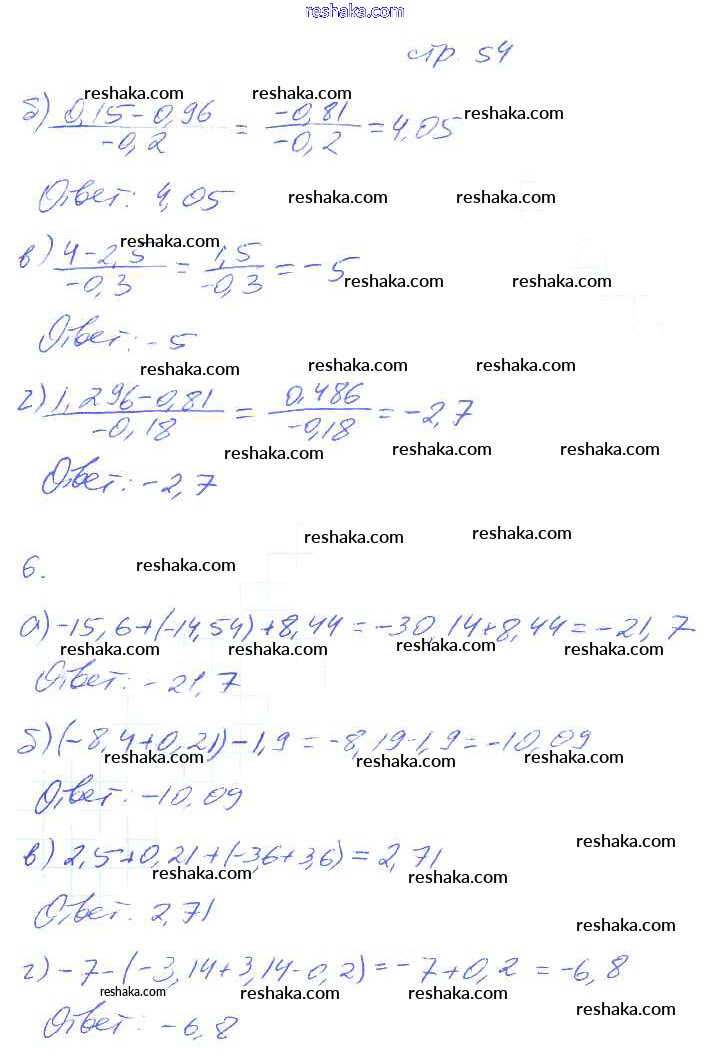 reshaka.com
стр. 54
reshaka.com reshaka.com reshaka.com
б) (0,15-0,96)/(-0,2) = (-0,81)/(-0,2) = 4,05
Ответ: 4,05
reshaka.com reshaka.com
reshaka.com
в) (4-2,5)/(-0,3) = (1,5)/(-0,3) = -5
reshaka.com reshaka.com
Ответ: -5
reshaka.com reshaka.com reshaka.com
г) (1,296-0,81)/(-0,18) = (0,486)/(-0,18) = -2,7
reshaka.com reshaka.com reshaka.com
Ответ: -2,7
reshaka.com reshaka.com
6.
reshaka.com
а) -15,6+(-14,54)+8,44 = -30,14+8,44 = -21,7
reshaka.com reshaka.com reshaka.com reshaka.com
Ответ: -21,7
б) (-8,4+0,21)-1,9 = -8,19-1,9 = -10,09
reshaka.com reshaka.com reshaka.com
Ответ: -10,09
reshaka.com
в) 2,5+0,21+(-3,6+3,6) = 2,71
reshaka.com reshaka.com
Ответ. 2,71
reshaka.com
г) -7-(-3,14+3,14-0,2) = -7+0,2 = -6,8
reshaka.com reshaka.com reshaka.com
Ответ: -6,8
reshaka.com